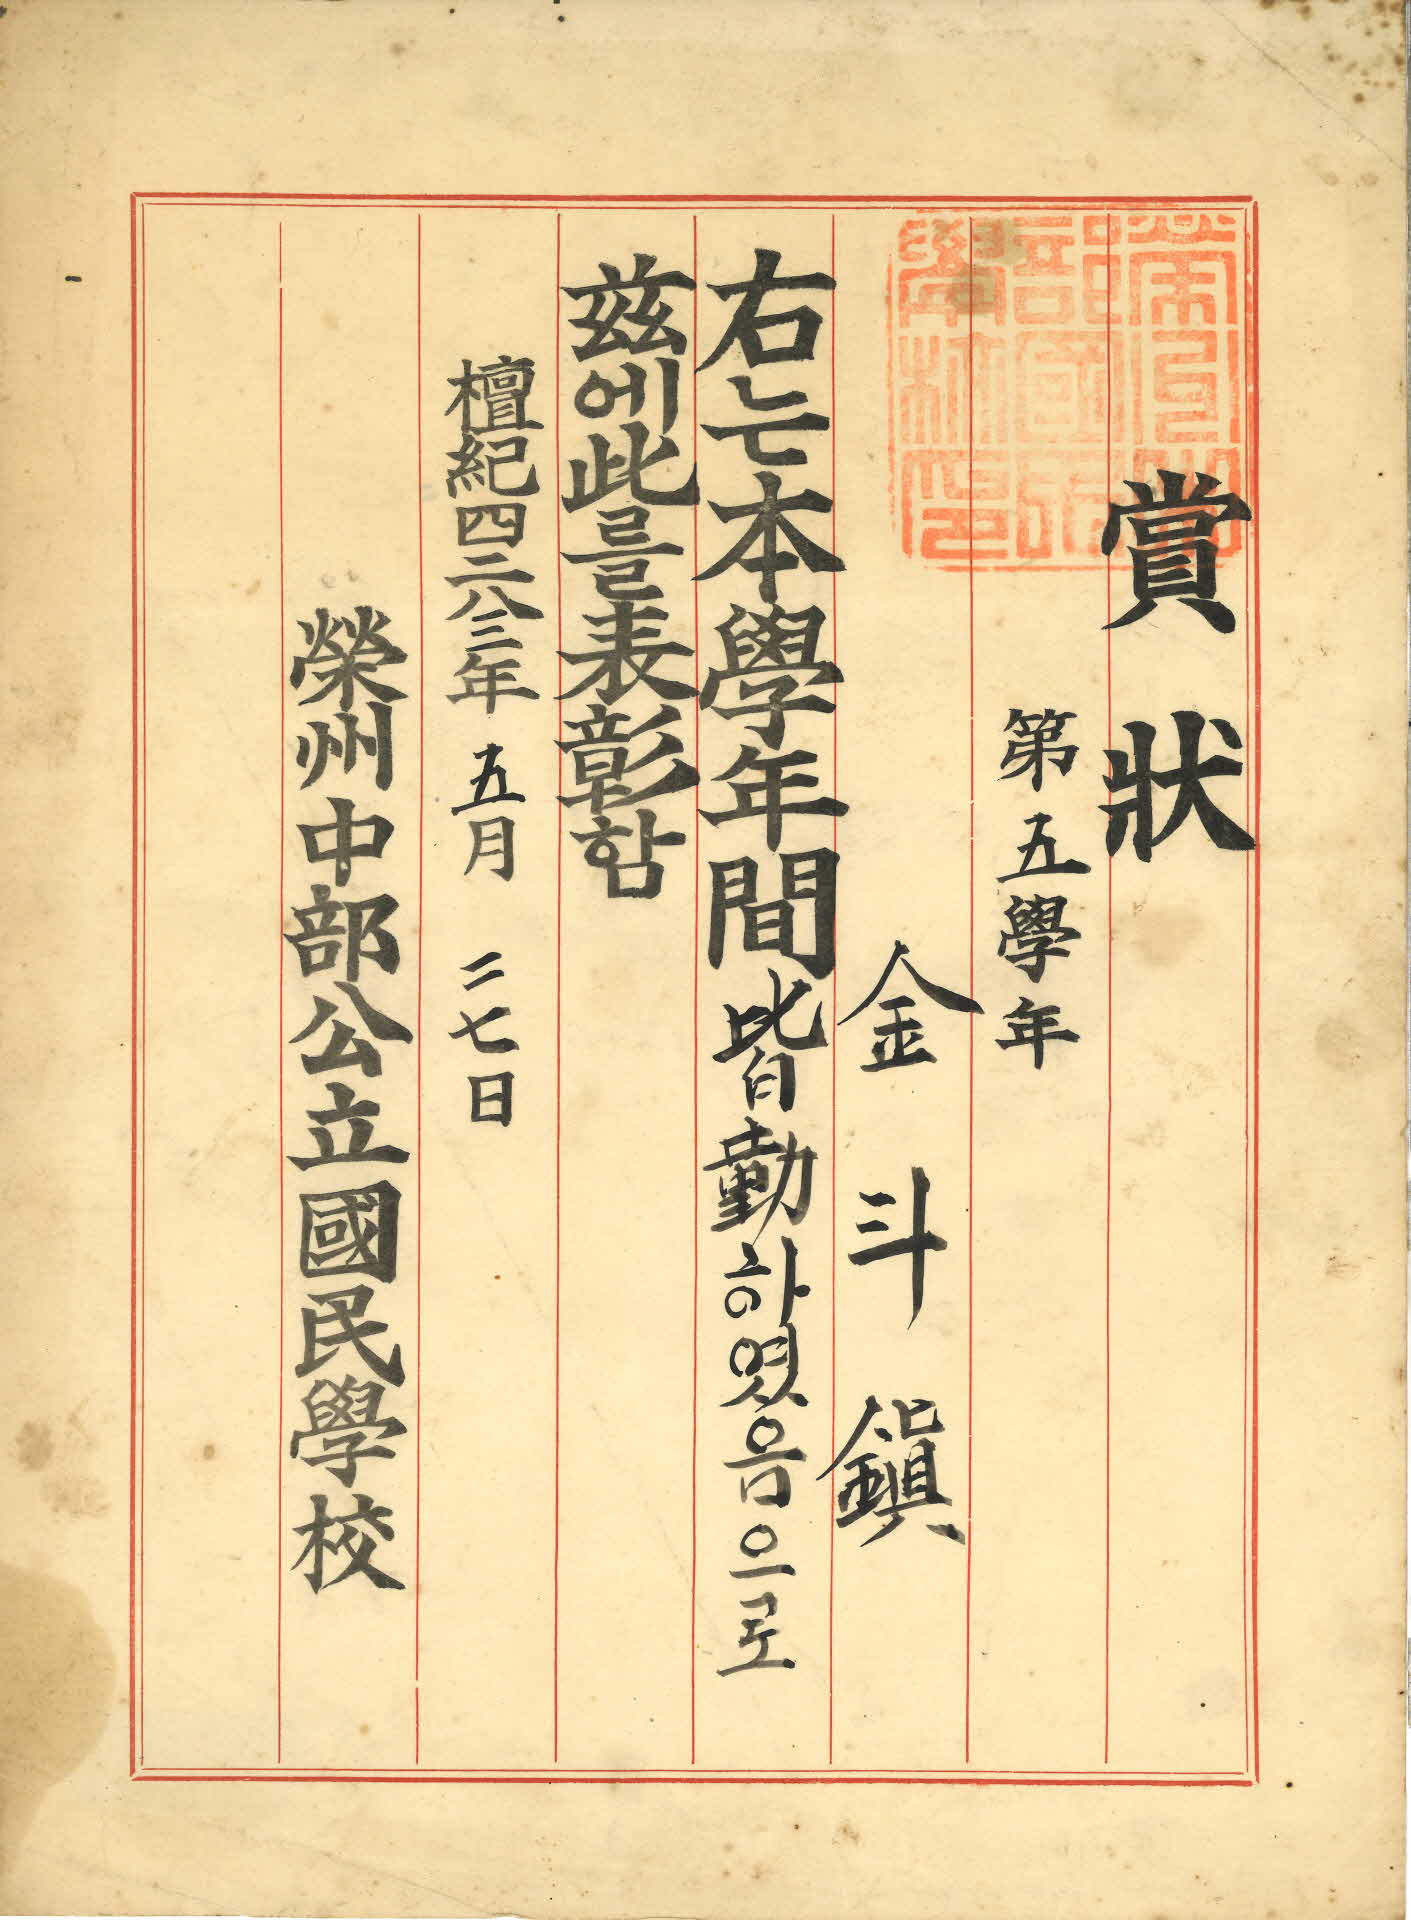 賞狀
第五學年
金斗鎭
右는本學年間皆勤하였음으로
玆에此를表彰함
檀紀四二八三年 五月 二七日
榮州中部公立國民學校